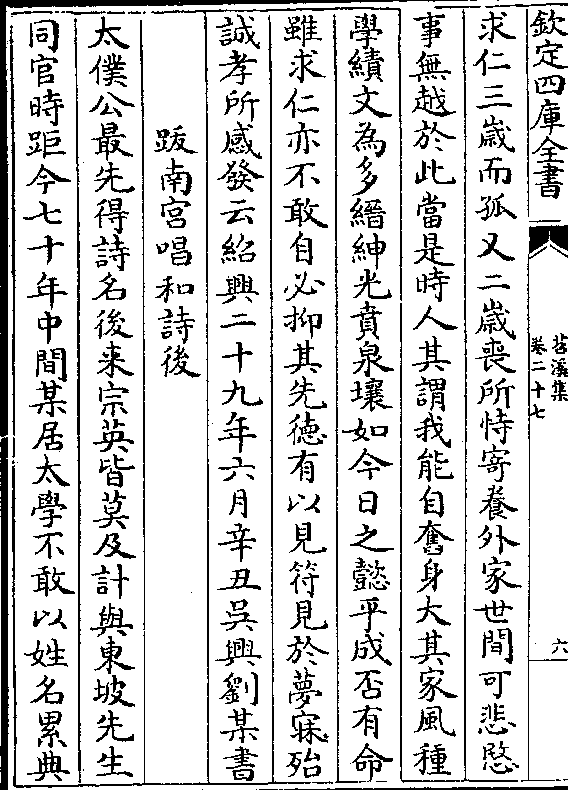 欽定四庫全書
苕溪集
卷二十七
六
求仁三歳而孤又二歳喪所恃寄養外家世間可悲愍
事無越於此當是時人其謂我能自奮身大其家風種
學績文為多縉紳光賁泉壤如今日之懿乎成否有命
雖求仁亦不敢自必抑其先徳有以見符見於夢寐殆
誠孝所感發云紹興二十九年六月辛丑吳興劉某書
跋南宮唱和詩後
太僕公最先得詩名後来宗英皆莫及計與東坡先生
同官時距今七十年中間某居太學不敢以姓名累典